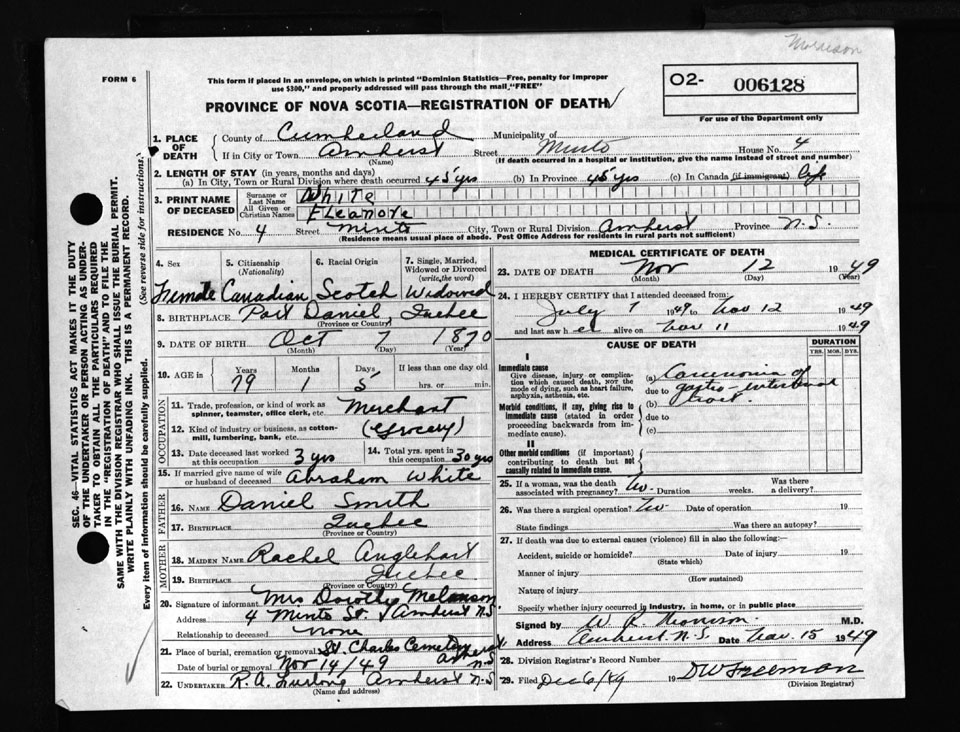 Morrison
FORM 6
This form if placed in an envelope, on which is printed "Dominion Statistics—Free, penalty for improper
use $300," and properly addressed will pass through the mail "FREE"
PROVINCE OF NOVA SCOTIA—REGISTRATION OF DEATH
O2- 006128
For use of the Department only
1. PLACE OF DEATH
County of Cumberland Municipality of
If in City or Town Amherst Street Minto House No. 4
(Name) (If death occurred in a hospital or institution, give the name instead of street and number)
2. LENGTH OF STAY (in years, months and days)
(a) In City, Town or Rural Division where death occurred 45 yrs (b) In Province 45 yrs (c) In Canada (if immigrant) life
3. PRINT NAME OF DECEASED
Surname or Last Name White
All Given or Christian Names Eleanore
RESIDENCE No. 4 Street Minto City, Town or Rural Division Amherst Province N.S.
(Residence means usual place of abode. Post Office Address for residents in rural parts not sufficient)
4. Sex 5. Citizenship (Nationality) 6. Racial Origin 7. Single, Married, Widowed or Divorced (write the word)
Female Canadian Scotch Widowed
8. BIRTHPLACE Port Daniel, Quebec
(Province or Country)
9. DATE OF BIRTH Oct 7 1870
(Month) (Day) (Year)
10. AGE in Years Months Days If less than one day old
79 1 5 hrs. or min.
OCCUPATION
11. Trade, profession, or kind of work as spinner, teamster, office clerk, etc. Merchant
12. Kind of industry or business, as cotton-mill, lumbering, bank, etc. (Grocery)
13. Date deceased last worked at this occupation 3 yrs 14. Total yrs. spent in this occupation 30 yrs
15. If married give name of wife or husband of deceased Abraham White
FATHER
16. NAME Daniel Smith
17. BIRTHPLACE Quebec
(Province or Country)
MOTHER
18. MAIDEN NAME Rachel Anglehart
19. BIRTHPLACE Quebec
(Province or Country)
20. Signature of informant Mrs Dorothy Melanson
Address 4 Minto St. Amherst N.S
Relationship to deceased none
21. Place of burial, cremation or removal St. Charles Cemetery Amherst N.S
Date of burial or removal Nov 14/49
22. UNDERTAKER R. A. Furlong Amherst N.S
(Name and address)
MEDICAL CERTIFICATE OF DEATH
23. DATE OF DEATH Nov 12 1949
(Month) (Day) (Year)
24. I HEREBY CERTIFY that I attended deceased from:
July 1 1949 to Nov 12 1949
and last saw her alive on Nov 11 1949
CAUSE OF DEATH DURATION
YRS. MOS. DYS.
I
Immediate cause
Give disease, injury or complication which caused death, not the mode of dying, such as heart failure, asphyxia, asthenia, etc.
(a) Carcinoma of
due to gastro-intestinal
Morbid conditions, if any, giving rise to immediate cause (stated in order proceeding backwards from immediate cause).
(b) tract.
due to
(c)
II
Other morbid conditions (if important) contributing to death but not causally related to immediate cause.
25. If a woman, was the death associated with pregnancy? No. Duration weeks. Was there a delivery?
26. Was there a surgical operation? No Date of operation 19
State findings Was there an autopsy?
27. If death was due to external causes (violence) fill in also the following:—
Accident, suicide or homicide? Date of injury 19
(State which)
Manner of injury
(How sustained)
Nature of injury
Specify whether injury occurred in industry, in home, or in public place
Signed by W. R. Morrison. M.D.
Address Amherst N.S. Date Nov. 15 1949
28. Division Registrar's Record Number
29. Filed Dec 6/49 19 DW Freeman
(Division Registrar)
SEC. 46—VITAL STATISTICS ACT MAKES IT THE DUTY
OF THE UNDERTAKER OR PERSON ACTING AS UNDER-
TAKER TO OBTAIN ALL THE PARTICULARS REQUIRED
IN THE "REGISTRATION OF DEATH" AND TO FILE THE
SAME WITH THE DIVISION REGISTRAR WHO SHALL ISSUE THE BURIAL PERMIT.
WRITE PLAINLY WITH UNFADING INK. THIS IS A PERMANENT RECORD.
Every item of information should be carefully supplied. (See reverse side for instructions.)